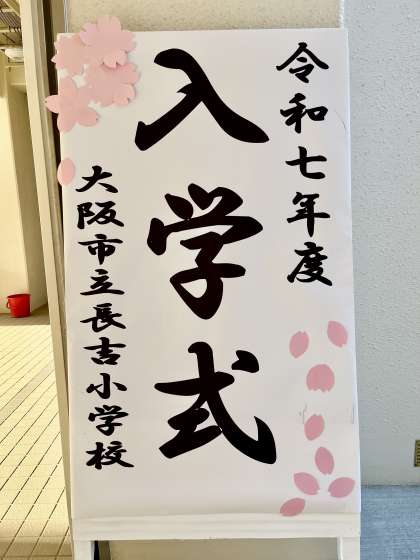 令和七年度
入学式
大阪市立長吉小学校